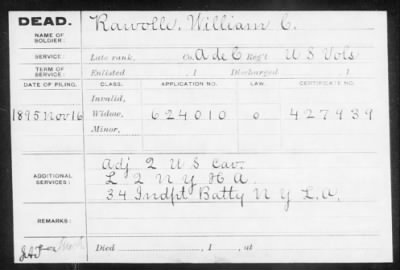 DEAD.
NAME OF SOLDIER: Rawolle, William C.
SERVICE: Late rank, Co. A de C Reg't U S Vols
TERM OF SERVICE: Enlisted , 1 Discharged , 1
DATE OF FILING. CLASS. APPLICATION NO. LAW. CERTIFICATE NO.
Invalid,
1895 Nov 16 Widow, 624010 o 427939
Minor,
ADDITIONAL SERVICES: Adj 2 U S Cav.
L 2 N Y H A
34 Indpt Batty N Y L.A.
REMARKS:
Died , 1 , at